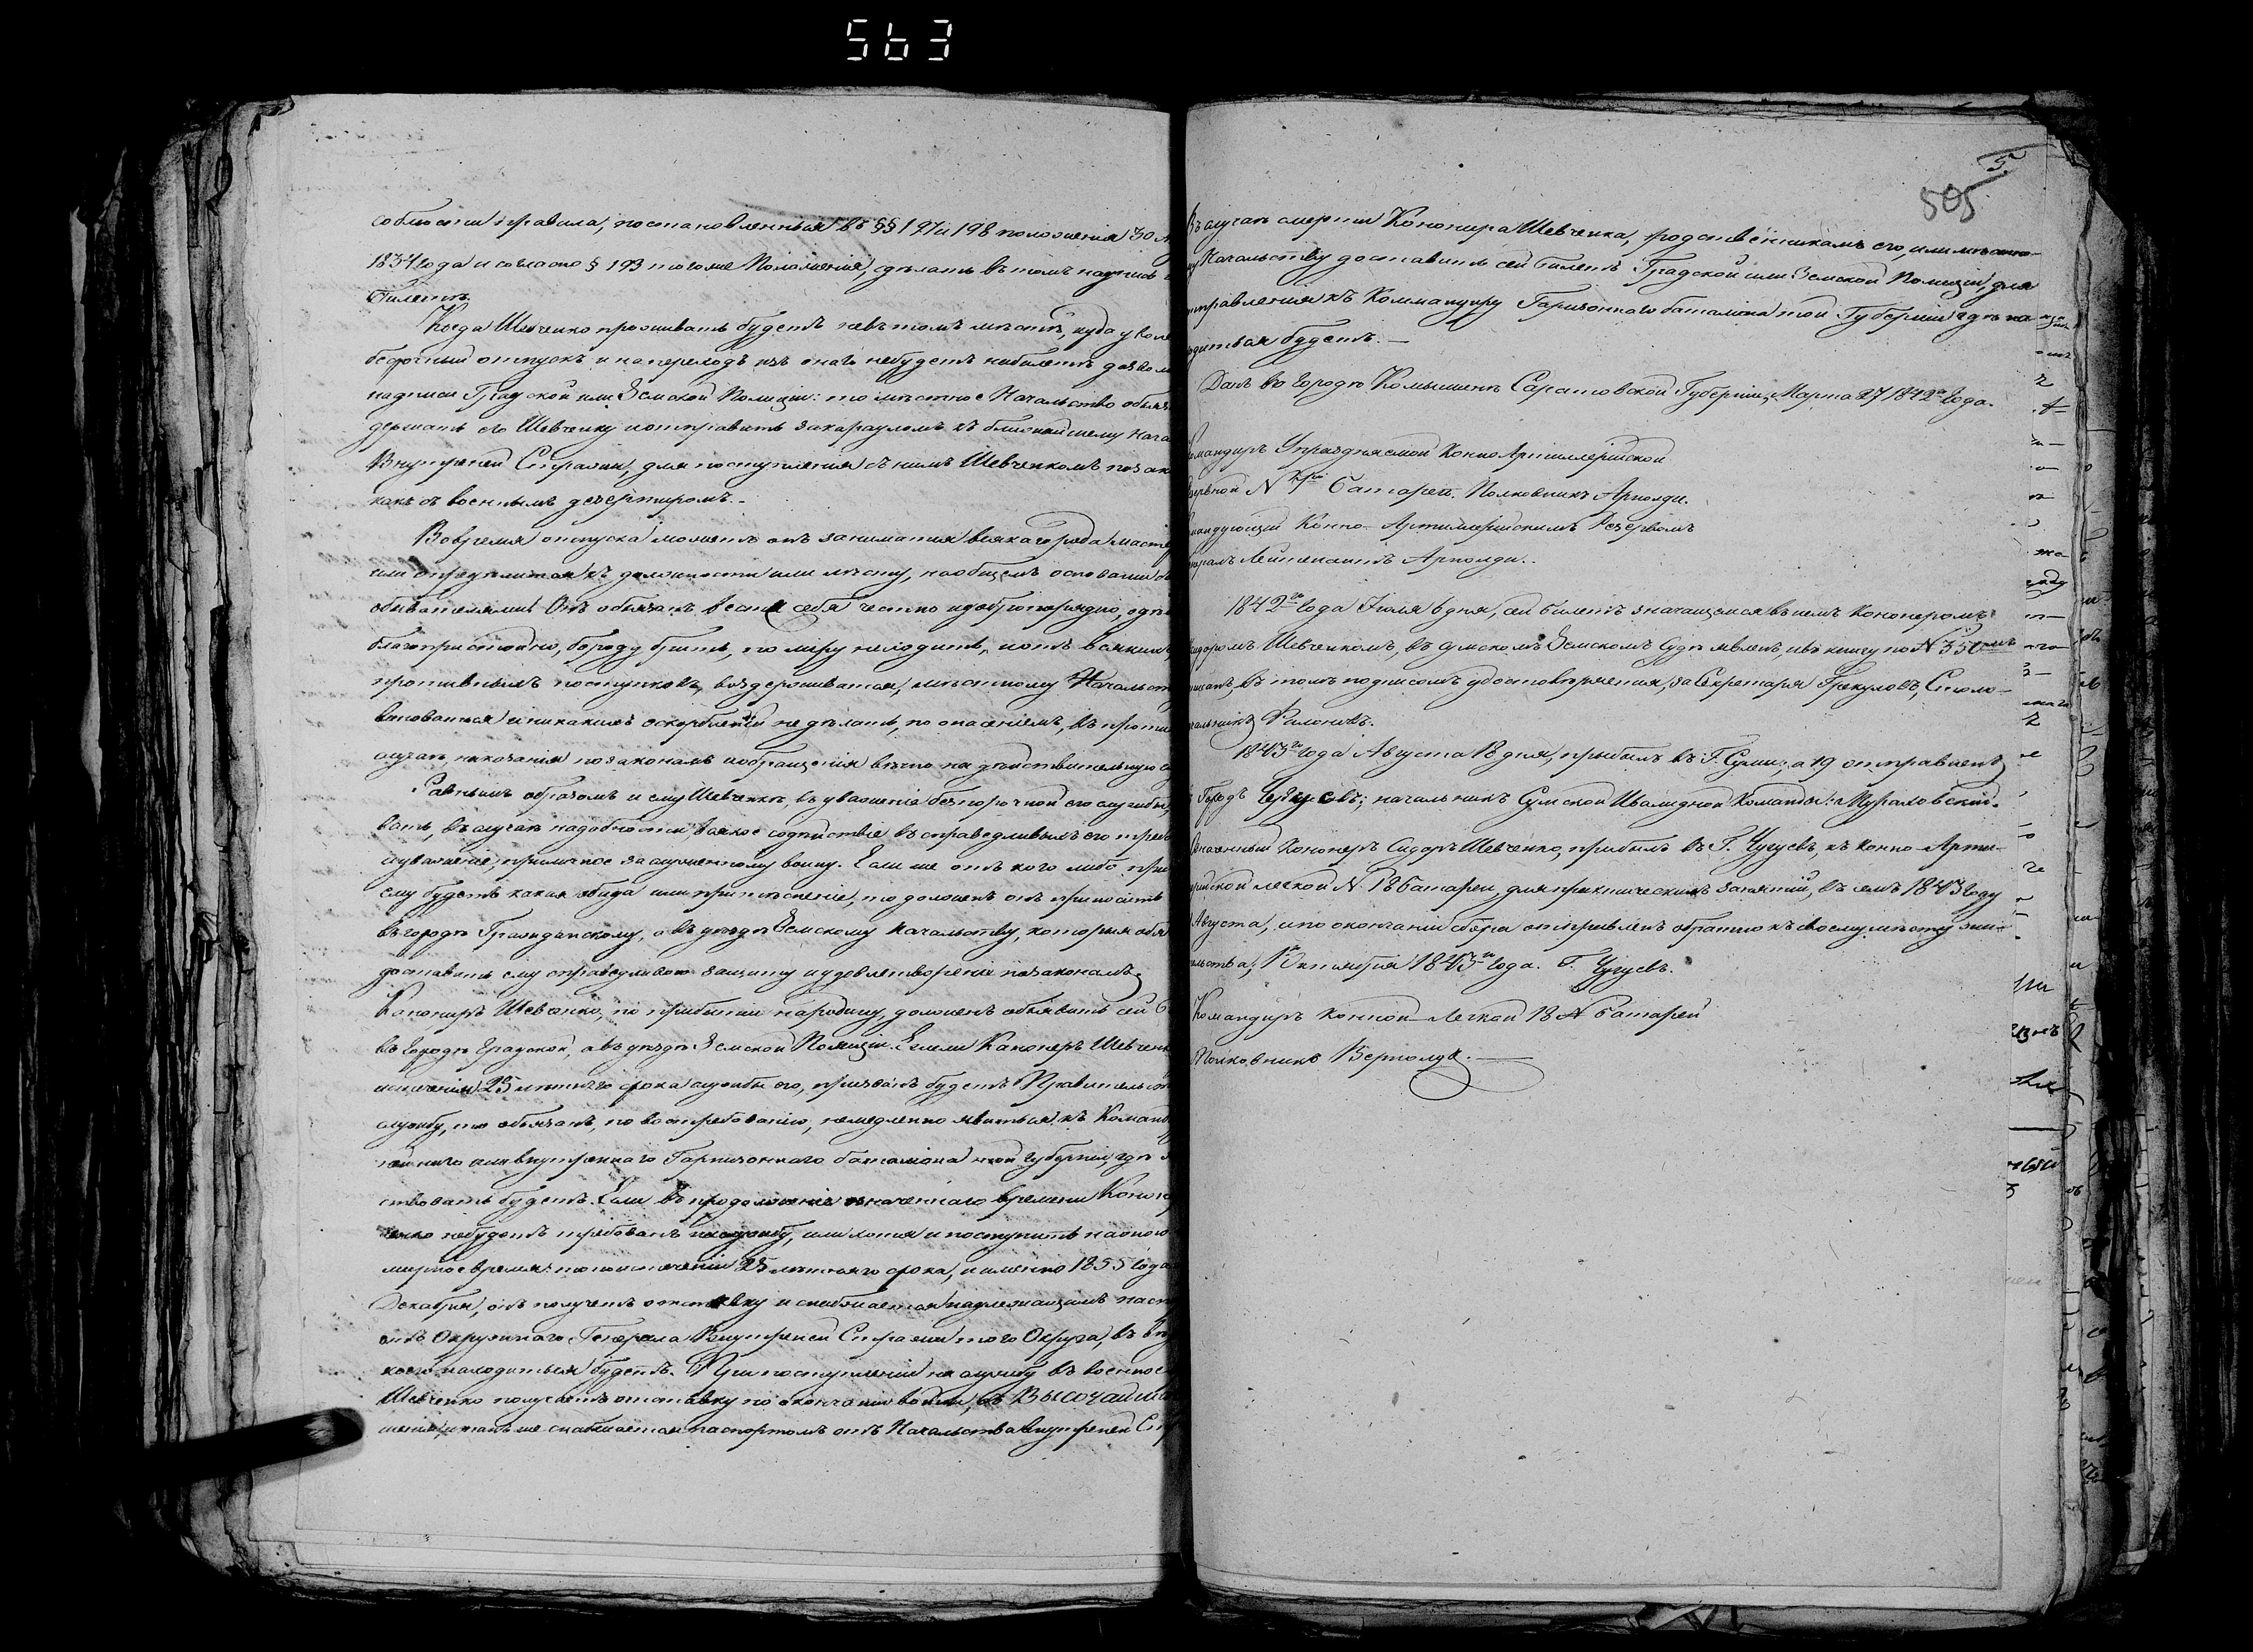 563
соблюсти правила, постановленныя въ §§ 197 и 198 положенія 30
1834 года и согласно § 193 того же Положенія, сдѣлать въ томъ надпись
билетѣ.
Когда Шевченко проживать будетъ не въ томъ мѣстѣ, куда уволе
безсрочный отпускъ и на переходъ изъ онаго небудетъ на билетѣ дозволи
надписи Градской или Земской Полиціи: то мѣстное Начальство обяз
держать его Шевченку и отправить за карауломъ къ ближайшему Нача
Внутреней Стражи, для поступленія съ нимъ Шевченкомъ по зак
какъ съ военнымъ дезертиромъ.
Во время отпуска можетъ онъ заниматся всякаго рода масте
или опредѣлится къ должности или мѣсту, на общемъ основаніи
обывателями. Онъ обязанъ вести себя честно и добропорядно, одѣ
благопристойно, бороду брить, по міру неходить, и отъ всякихъ
противныхъ поступковъ воздерживатся, мѣстному Начальст
виноваться и никакихъ оскорбленій не дѣлать, по опасеніемъ, въ проти
случаѣ, наказанія по законамъ и обращенія вѣчно на дѣйствительную
Равнымъ образомъ и ему Шевченкѣ, въ уваженіе безпорочной его службы,
вать, въ случаѣ надобности, всякое содѣйствіе въ справедливыхъ его треб
и уваженіе, приличное заслуженному воину. Если же отъ кого либо при
ему будетъ какая обида или притѣсненіе, то долженъ онъ приносить
въ городѣ Гражданскому, а въ уѣздѣ Земскому Начальству, которыя обя
доставить ему справедливою защиту и удовлетвореніе по законамъ.
Канониръ Шевченко, по прибытіи на родину, долженъ объявить сей б
въ городѣ Градской, а въ уѣздѣ Земской Полиціи. Ежели Канонеръ Шевченк
истеченія 25 лѣтняго срока службы его, призванъ будетъ Правительст
службу, то обязанъ, по востребованію, немедленно явиться къ Команд
нейнаго или внутренняго Гарнизоннаго баталіона той губерніи, гдѣ
ствовать будетъ. Если въ продолженіе означеннаго времени Конон
ченко небудетъ требованъ на службу, или хотя и поступитъ на оною
мирное время: то по истеченіи 25 лѣтняго срока, и именно 1855 года
Декабря, онъ получетъ отставку и снабжается надлежащимъ пасп
отъ Окружнаго Генерала Внутреней Стражи того Округа, въ вѣ
коего находиться будетъ. При поступленіи на службу въ военное
Шевченко получаетъ отставку по окончаніи войны, съ Высочайша
шенія, и также снабжается паспортомъ отъ Начальства внутреней Ст
5
505
Въ случаѣ смерти Конониръ Шевченка, родственникамъ его, или мѣстно-
му Начальству доставить сей билетъ Градской или Земской Полиціи, для
отправленія къ Коммандиру Гарнизоннаго баталіона той Губерніи гдѣ на-
ходиться будетъ.
Данъ въ городѣ Комышенѣ Саратовской Губерніи, Марта 27 1842го года.
Командиръ Упраздняемой Конно Артиллерійской
резервной N батареи. Полковникъ Арнолди.
Командующій Конно-Артиллерійскимъ Резервомъ
Генералъ Лейтенантъ Арнолди.
1842го года Іюля 6 дня, сей билетъ значащемся въ немъ Кононеромъ
Сидоромъ Шевченкомъ, въ Сумскомъ Земскомъ Судѣ явленъ, и въ книгу по N 350
записанъ, въ томъ подписомъ удостовѣряется, за Секретаря Грекуловъ, Столо-
начальникъ Филоновъ.
1843го года Августа 18 дня, прибылъ въ Г. Сумы; а 19 отправленъ
въ Городъ Чугуевъ; начальникъ Сумской Инвалидной Команды: Мураховскій.
Означенный Кононеръ Сидоръ Шевченко, прибылъ въ Г. Чугуевъ, къ конно-Арти-
лерійской легкой N 18 батареи, для практическихъ занятій, въ семъ 1843 году
Августа, и по окончаніи сбора отправленъ обратно къ своему мѣсту жи-
тельства, 1 Октября 1843го года. Г. Чугуевъ.
Командиръ Конной-Легкой 18 N батареи
Полковникъ Бертолуд.